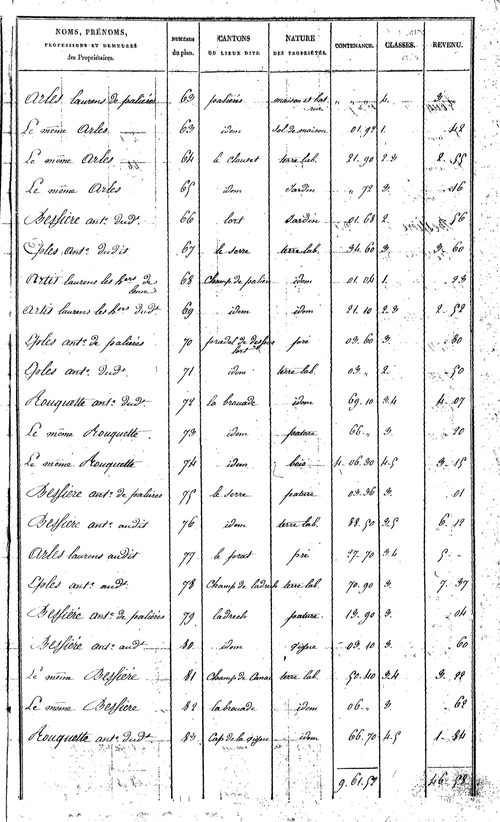 NOMS, PRÉNOMS, PROFESSIONS ET DEMEURES des Propriétaires. | NUMÉROS du plan. | CANTONS OU LIEUX DITS. | NATURE DES PROPRIÉTÉS. | CONTENANCE. | CLASSES. | REVENU.
Arles laurens de palières 63 palières maison et bat. " " " 4. 3. "
Le même Arles 63 idem sol. de maison 01. 92 1. . 42
Le même Arles 64 le clauset terre lab. 21. 90 2.3 2. 55
Le même Arles 65 idem Jardin " 72 3. . 16
Bessière ant.e dudt. 66 lort Jardin 01. 68 2. . 56
Ant.e dudit 67 le serre terre lab. 34. 60 3. 3. 60
Artis laurens les hers de 68 Champ de palier idem 01. 04 1. . 23
Artis laurens les hers dudt. 69 idem idem 21. 10 2.3 2. 52
ant.e de palières 70 pré 03. 60 3. . 80
ant.e dudt. 71 idem terre lab. 03. " 2. . 50
Rouquette ant.e dudt. 72 la brouade idem 69. 10 3.4 4. 07
Le même Rouquette 73 idem pature 66. " 3. . 20
Le même Rouquette 74 idem bois 4. 06. 30 4.5 3. 15
Bessière ant.e de palières 75 le serre pature 03. 36 3. . 01
Bessière ant.e audit 76 idem terre lab. 88. 50 3.5 6. 12
Arles laurens audit 77 pré 27. 70 3.4 5. "
ant.e audt. 78 Champ de ladrech terre lab. 70. 90 3. 7. 37
Bessière ant.e de palières 79 ladrech pature 13. 90 3. . 04
Bessière ant.e audt. 80 idem vigne 03. 10 3. . 60
Le même Bessière 81 Champ de Canac terre lab. 50. 40 3.4 3. 22
Le même Bessière 82 la brouade idem 06. " 3. . 62
Rouquette ant.e dudt. 83 Cap de la vigne idem 66. 70 4.5 1. 84
9. 61. 57 46. 58